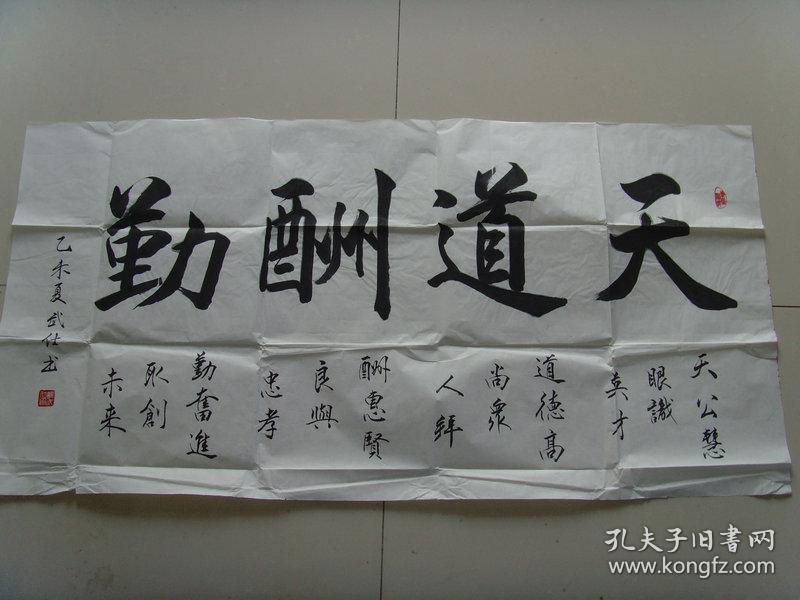 天道酬勤
天公慧
眼識
英才
道德高
尚衆
人拜
酬惠賢
良與
忠孝
勤奮進
取創
未来
乙未夏武仕书
孔夫子旧書网
www.kongfz.com